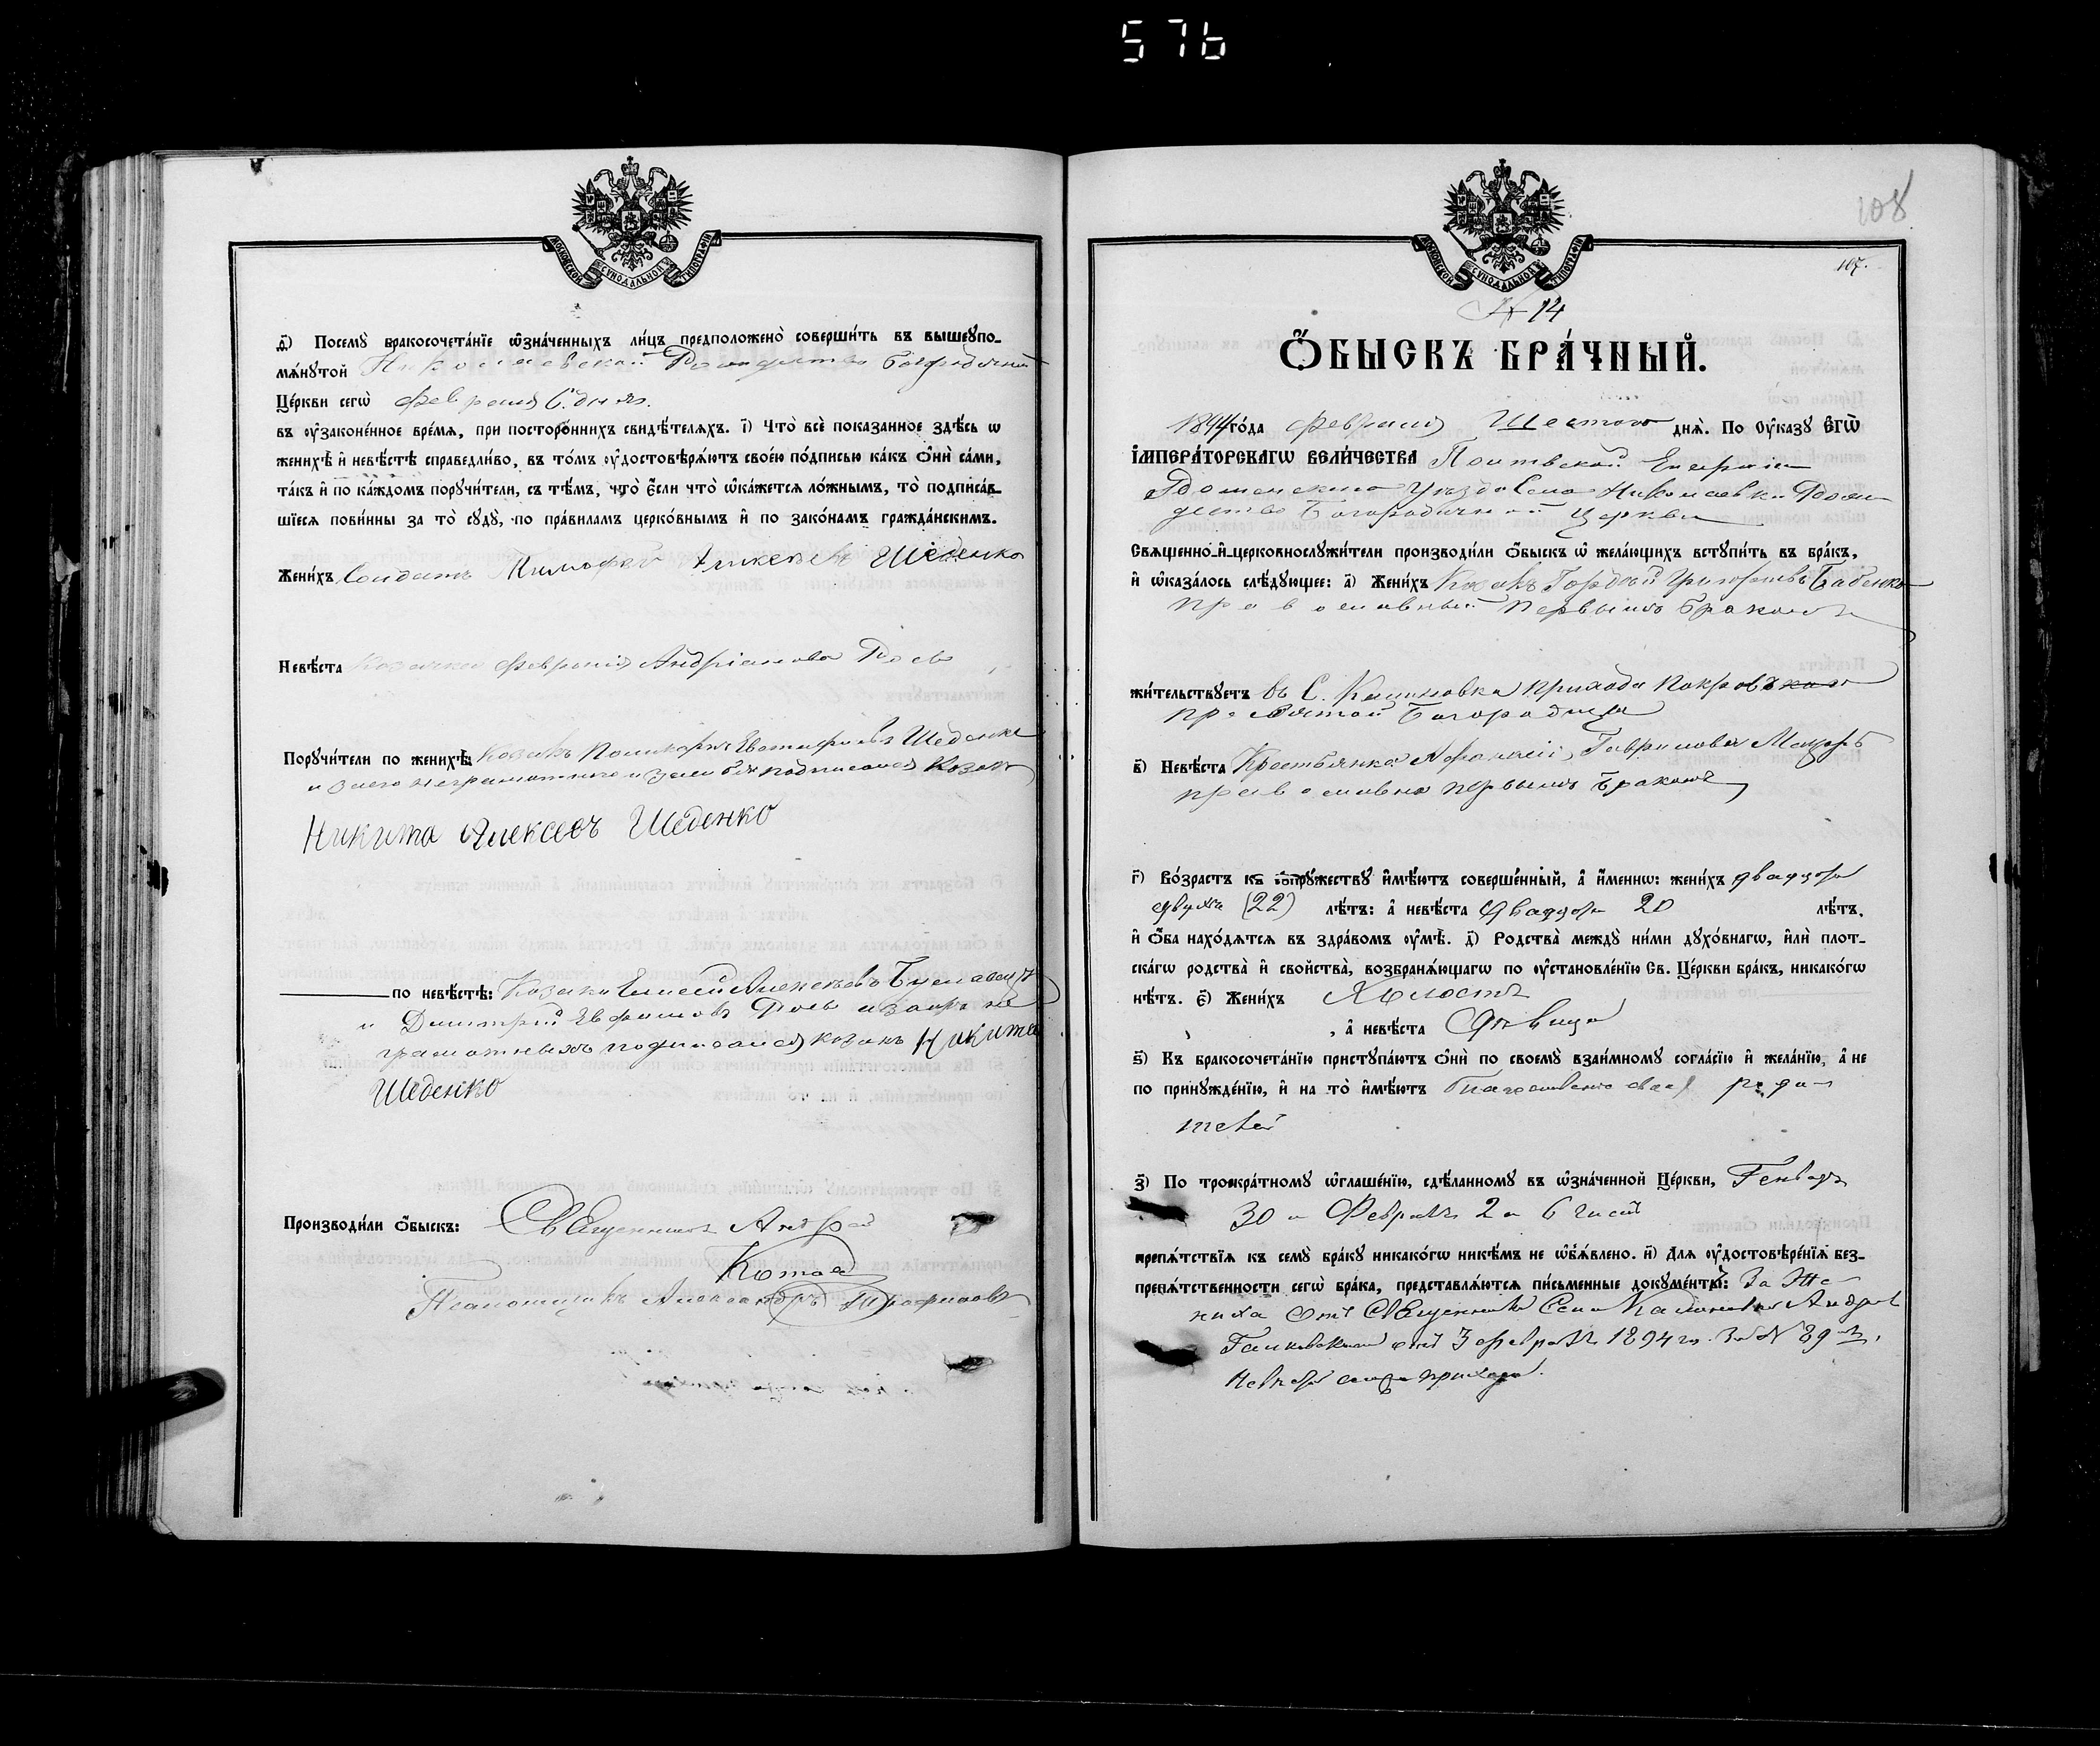 576
МОСКОВСКОЙ СѴНОДАЛЬНОЙ ТИПОГРАФІИ
ѳ҃) Посемꙋ̀ вракосочета́нїе ѡ҆зна́ченныхъ ли́цъ предположено̀ соверши́ть въ вышеꙋпо-
мѧ́нꙋтой Николаевской Рождество Богородичной
Це́ркви сегѡ̀ февраля 6 дня.
въ ᲂу҆зако́ненное вре́мѧ, при посторо́ннихъ свидѣ́телѧхъ. і҃) Что̀ всѐ показанное здѣ́сь ѡ
женихѣ̀ и҆ невѣ́стѣ справедли́во, въ то́мъ ᲂу҆достовѣрѧ́ютъ свое́ю по́дписью ка́къ ѻ҆нѝ са́ми,
та́къ и҆ по ка́ждомъ порꙋчи́тели, съ тѣ́мъ, что̀ є҆́сли что̀ ѡ҆ка́жетсѧ ло́жнымъ, то̀ подписа́в-
шїесѧ пови́нны за то̀ сꙋдꙋ̀, по пра́виламъ церко́внымъ и҆ по зако́намъ гражда́нскимъ.
Жени́хъ Солдатъ Тимофей Алексѣевъ Шеденко
Невѣ́ста Козачка Февронія Андріанова
Порꙋчи́тели по женихѣ̀: Козакъ Поликарпъ Шеденко
и за его неграмотного и за себя подписался Козакъ
Никита Алексеевъ Шеденко
по невѣ́стѣ: Козаки Алексѣевъ
и Димитрій Ефимовъ и за ихъ не
грамотныхъ подписался козакъ Никита
Шеденко
Производи́ли ѻ҆́быскъ: Священникъ Андрей
Котов
Псаломщикъ Александръ Трофимовъ
108
107.
МОСКОВСКОЙ СѴНОДАЛЬНОЙ ТИПОГРАФІИ
№ 14
Ѻ҆́БЫСКЪ БРА́ЧНЫЙ.
1894 го́да февраля Шестого днѧ̀. По Оу҆ка́зꙋ Є҆гѡ̀
І҆мпера́торскагѡ Вели́чества Полтавской Епархіи
Роменскаго Уѣзда Села Николаевки Рож
дество Богородичной церкви
Свѧще́нно-и҆-церковнослꙋжи́тели производи́ли ѻ҆́быскъ ѡ҆ жела́ющихъ встꙋпи́ть въ бра́къ,
и҆ ѡ҆каза́лось слѣ́дꙋющее: а҃) Жени́хъ Козакъ Гордѣй Григорьевъ Бабенко
православный первымъ бракомъ
жи́тельствꙋетъ въ С. Калиновка прихода Покров
пресвятой Богородицы
в҃) Невѣ́ста Крестьянка Гаврилова
православна первымъ бракомъ
г҃) Во́зрастъ къ сꙋпрꙋ́жествꙋ и҆мѣ́ютъ соверше́нный, а҆ и҆́меннѡ: жени́хъ двадцать
двухъ (22) лѣ́тъ: а҆ невѣ́ста двадцать 20 лѣ́тъ,
и҆ ѻ҆́ба нахо́дѧтсѧ въ здра́вомъ ᲂу҆мѣ̀. д҃) Родства̀ междꙋ̀ ни́ми дꙋхо́внагѡ, и҆лѝ плот-
ска́гѡ родства̀ и҆ сво́йства, возбранѧ́ющагѡ по ᲂу҆становле́нїю Св. Це́ркви бра́къ, никако́гѡ
нѣ́тъ. є҃) Жени́хъ Холостъ
, а҆ невѣ́ста дѣвица
ѕ҃) Къ бракосочета́нїю пристꙋпа́ютъ ѻ҆нѝ по своемꙋ̀ взаи́мномꙋ согла́сїю и҆ жела́нїю, а҆ не
по принꙋжде́нїю, и҆ на то̀ и҆мѣ́ютъ благословеніе своих роди-
телей
з҃) По троекра́тномꙋ ѡ҆глаше́нїю, сдѣ́ланномꙋ въ ѡ҆зна́ченной Це́ркви, Генваря
30 и Февраля 2 и 6 числ
препѧ́тствїѧ къ семꙋ̀ бра́кꙋ никако́гѡ никѣ́мъ не ѡ҆б̾ѧ́влено. и҃) Длѧ ᲂу҆достовѣре́нїѧ без-
препѧ́тственности сегѡ̀ бра́ка, представлѧ́ютсѧ пи́сьменные докꙋме́нты: За Же-
ниха отъ Священника Села Калиновки Андрея
от 3 февраля 1894 го. за № 89 м.
Невѣста сего прихода.